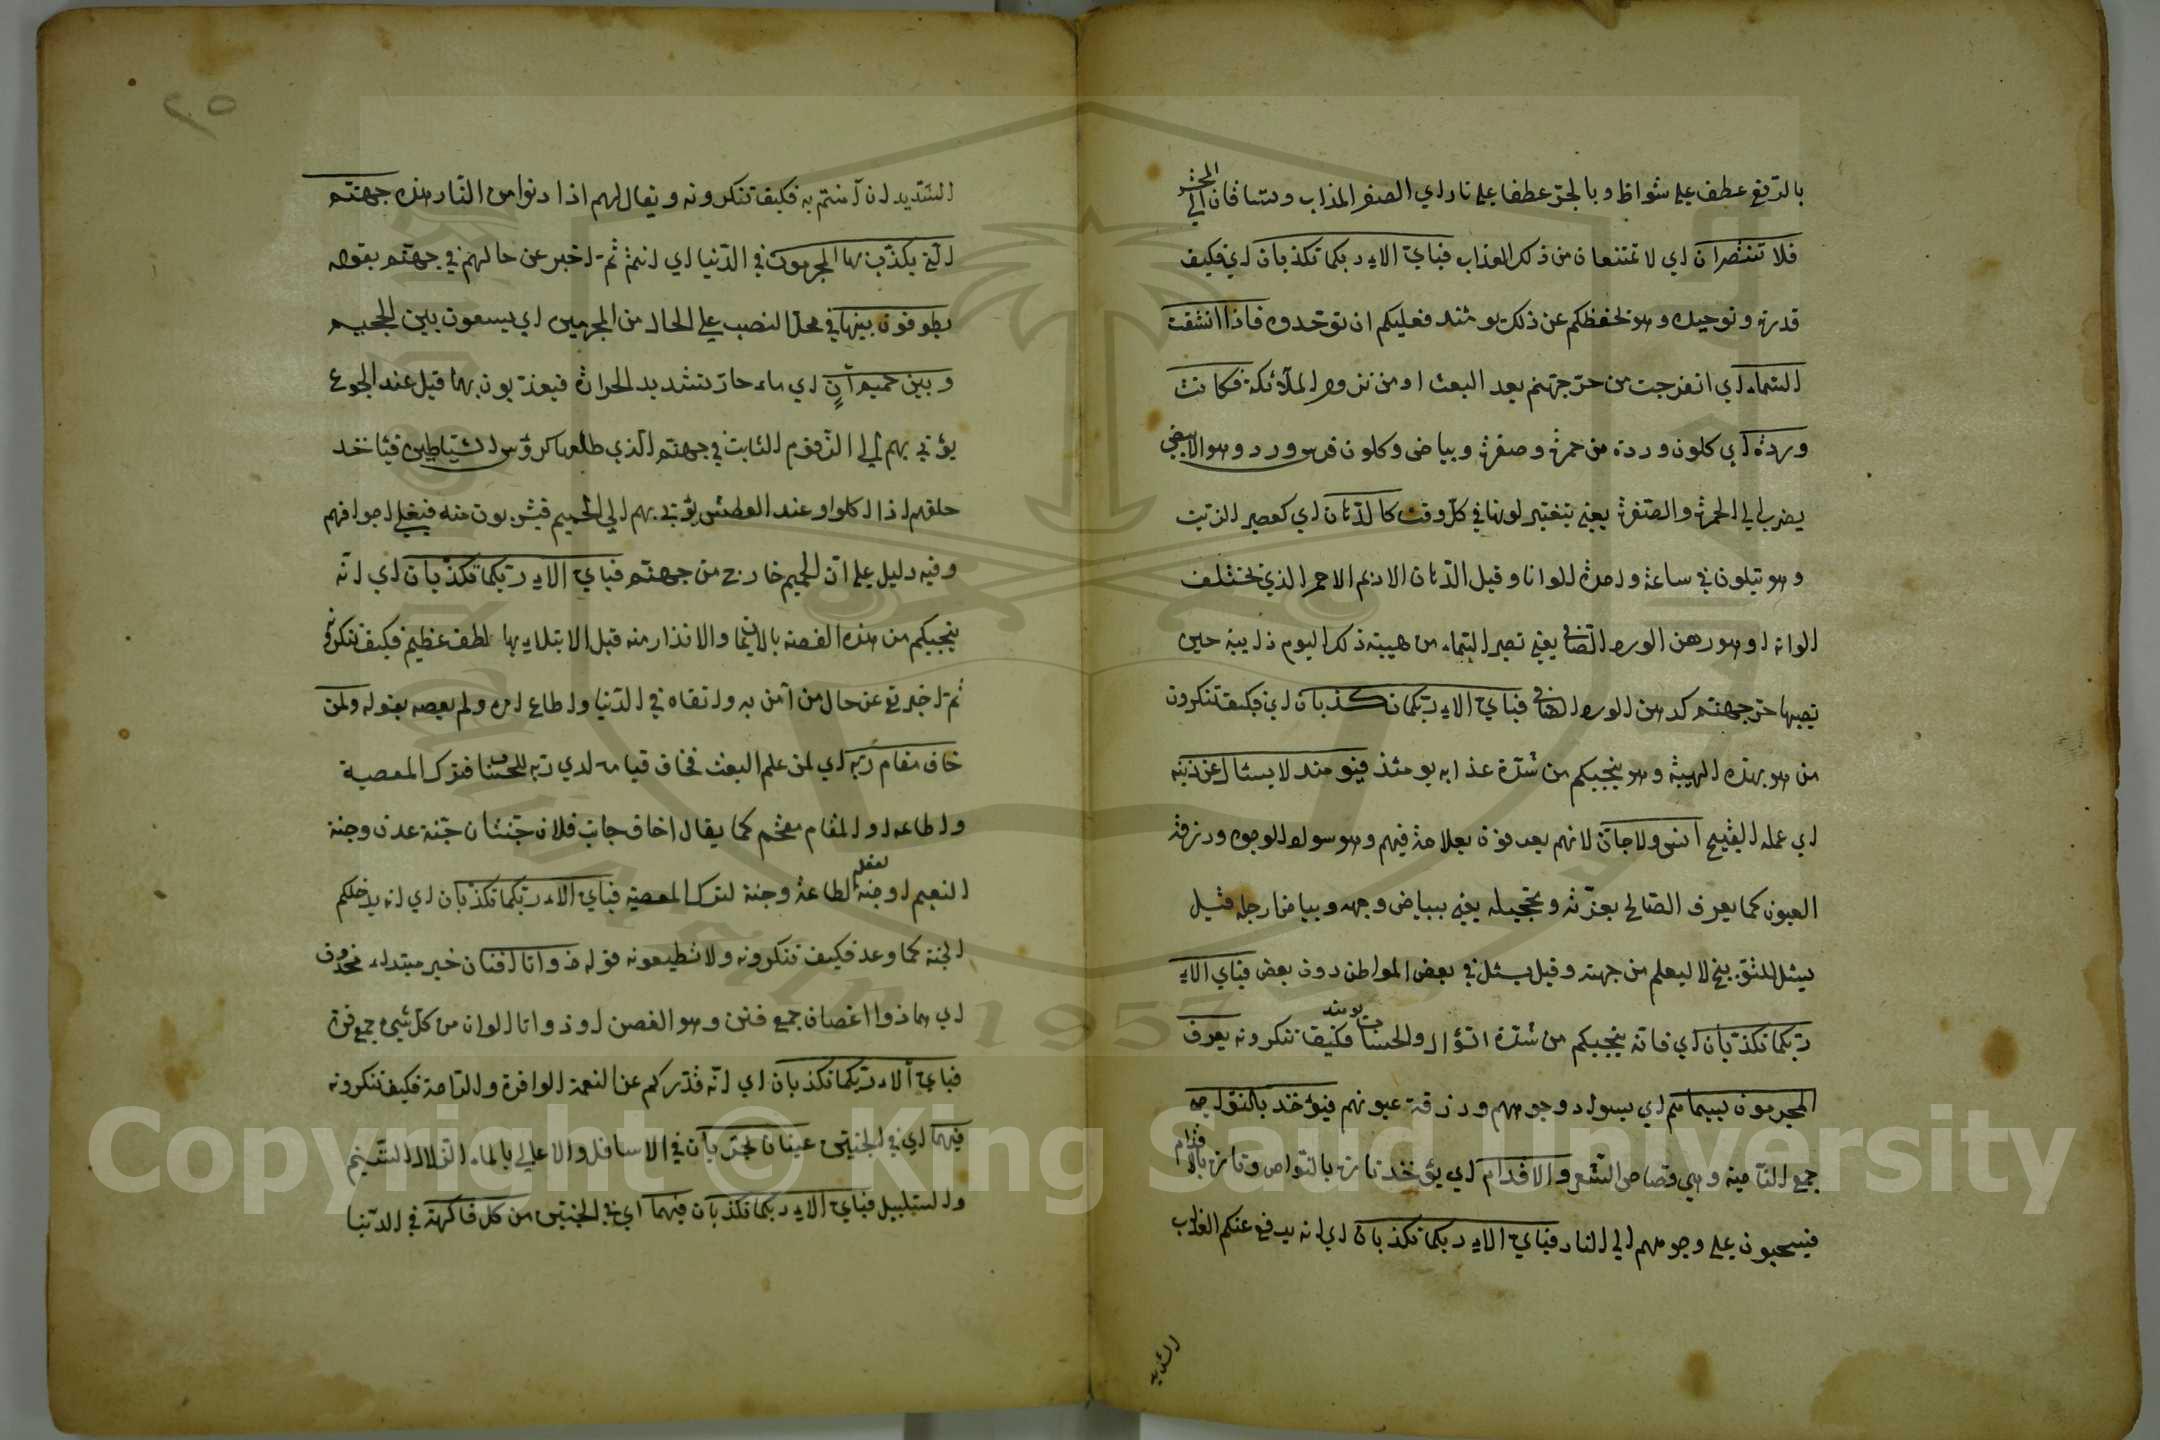 بالرفع عطف على شواظ وبالجر عطفا على نار اي الصفر المذاب وتساقان الى المحشر
فلا تنتصران اي لا تمتنعان من ذلك العذاب فباي الاء ربكما تكذبان اي فكيف
قدرته وتوحيده وهو يحفظكم عن ذلك يومئذ فعليكم ان توحدوه فاذا انشقت
السماء اي انفرجت من حر جهنم بعد البعث او من نزول الملائكة فكانت
وردة اي كلون وردة من حمرة وصفرة وبياض وكلون فرس ورد وهو الابيض
يضرب الى الحمرة والصفرة يعني يتغير لونها في كل وقت كالدهان اي كعصير الزيت
وهو يتلون في ساعة واحدة الوانا وقيل الدهان الاديم الاحمر الذي يختلف
الوانه او هو دهن الورد الصافي يعني تصير السماء من هيبته ذلك اليوم ذايبة حين
تصيبها حر جهنم كدهن الورد الصافي فباي الاء ربكما تكذبان اي فكيف تنكرون
من هو بهذه الهيبة وهو ينجيكم من شدة عذابه يومئذ فيومئذ لا يسئال عن ذنبه
اي عمله القبيح انس ولا جان لانهم يعرفون بعلامة فيهم وهو سواد الوجوه وزرقة
العيون كما يعرف الصالح بغرته وتحجيله يعني ببياض وجهه وبياض رجله قيل
يسئل للتوبيخ لا ليعلم من جهته وقيل يسئل في بعض المواطن دون بعض فباي الاء
ربكما تكذبان اي فانه ينجيكم من شدة السؤال والحساب يومئذ فكيف تنكرونه يعرف
المجرمون بسيماهم اي بسواد وجوههم وزرقة عيونهم فيؤخذ بالنواصي
جمع الناصية وهي قصاص الشعر والاقدام اي يؤخذ تارة بالنواصي وتارة بالاقدام
فيسحبون على وجوههم الى النار فباي الاء ربكما تكذبان اي انه يدفع عنكم العذاب
الشديد
٢٥
الشديد ان آمنتم به فكيف تنكرونه ويقال لهم اذا دنوا من النار هذه جهنم
التي يكذب بها المجرمون في الدنيا اي انتم ثم اخبر عن حالهم في جهنم بقوله
يطوفون بينها في محل النصب على الحال من المجرمين اي يسعون بين الجحيم
وبين حميم آن اي ماء حار شديد الحرارة فيعذبون بها قيل عند الجوع
يؤتى بهم الى الزقوم الثابت في جهنم الذي طلعها كرؤس الشياطين فياخذ
حلقهم اذا اكلوا وعند العطش يؤتى بهم الى الحميم فيشربون منه فيغلي اجوافهم
وفيه دليل على ان الحميم خارج من جهنم فباي الاء ربكما تكذبان اي انه
ينجيكم من هذه الغصة بالايمان والانذار منه قبل الابتلاء بها لطف عظيم فكيف تنكرونه
ثم اخبر عن حال من آمن به واتقاه في الدنيا واطاع امره ولم يعصه بقوله ولمن
خاف مقام ربه اي لمن علم البعث فخاف قيامه لدي ربه للحساب فترك المعصية
واطاعه او المقام مقحم كما يقال اخاف جانب فلان جنتان جنة عدن وجنة
النعيم او جنة لفعل الطاعة وجنة لترك المعصية فباي الاء ربكما تكذبان اي انه يدخلكم
الجنة كما وعد فكيف تنكرونه ولا تطيعونه قوله ذواتا افنان خبر مبتداء محذوف
اي هما ذوا اغصان جمع فنن وهو الغصن او ذواتا الوان من كل شيء جمع فن
فباي الاء ربكما تكذبان اي انه قدر لكم عن النعمة الوافرة والتامة فكيف تنكرونه
فيهما اي في الجنتين عينان تجريان في الاسافل والاعالي بالماء الزلال التسنيم
والسلسبيل فباي الاء ربكما تكذبان فيهما اي في الجنتين من كل فاكهة في الدنيا
Copyright © King Saud University
1957